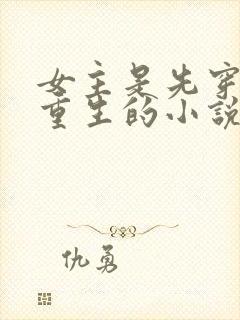 女主是先穿
重生的小說
仇勇